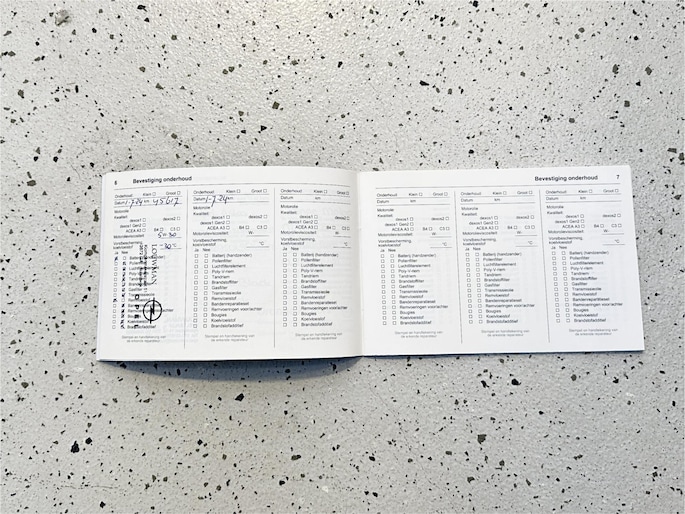 6 Bevestiging onderhoud
Onderhoud Klein Groot
Datum 1-7-24 km 45617
Motorolie
Kwaliteit dexos1 dexos2
dexos1 Gen2
ACEA A3 B4 C3
Motorolieviscositeit 5W-30
Vorstbescherming, koelvloeistof -30°C
Ja Nee
Batterij (handzender)
Pollenfilter
Luchtfilterelement
Poly V-riem
Tandriem
Brandstoffilter
Gasfilter
Transmissieolie
Remvloeistof
Bandenreparatieset
Remvoeringen voor/achter
Bougies
Koelvloeistof
Brandstofadditief
Onderhoud Klein Groot
Datum 1-7-24 km
Motorolie
Kwaliteit: dexos1 dexos2
dexos1 Gen2
ACEA A3 B4 C3
Motorolieviscositeit W-
Vorstbescherming, koelvloeistof °C
Ja Nee
Batterij (handzender)
Pollenfilter
Luchtfilterelement
Poly V-riem
Tandriem
Brandstoffilter
Gasfilter
Transmissieolie
Remvloeistof
Bandenreparatieset
Remvoeringen voor/achter
Bougies
Koelvloeistof
Brandstofadditief
Stempel en handtekening van
de erkende reparateur
Onderhoud Klein Groot
Datum km
Motorolie
Kwaliteit: dexos1 dexos2
dexos1 Gen2
ACEA A3 B4 C3
Motorolieviscositeit W-
Vorstbescherming, koelvloeistof °C
Ja Nee
Batterij (handzender)
Pollenfilter
Luchtfilterelement
Poly V-riem
Tandriem
Brandstoffilter
Gasfilter
Transmissieolie
Remvloeistof
Bandenreparatieset
Remvoeringen voor/achter
Bougies
Koelvloeistof
Brandstofadditief
Stempel en handtekening van
de erkende reparateur
Bevestiging onderhoud 7
Onderhoud Klein Groot
Datum km
Motorolie
Kwaliteit: dexos1 dexos2
dexos1 Gen2
ACEA A3 B4 C3
Motorolieviscositeit W-
Vorstbescherming, koelvloeistof °C
Ja Nee
Batterij (handzender)
Pollenfilter
Luchtfilterelement
Poly V-riem
Tandriem
Brandstoffilter
Gasfilter
Transmissieolie
Remvloeistof
Bandenreparatieset
Remvoeringen voor/achter
Bougies
Koelvloeistof
Brandstofadditief
Stempel en handtekening van
de erkende reparateur
Onderhoud Klein Groot
Datum km
Motorolie
Kwaliteit: dexos1 dexos2
dexos1 Gen2
ACEA A3 B4 C3
Motorolieviscositeit W-
Vorstbescherming, koelvloeistof °C
Ja Nee
Batterij (handzender)
Pollenfilter
Luchtfilterelement
Poly V-riem
Tandriem
Brandstoffilter
Gasfilter
Transmissieolie
Remvloeistof
Bandenreparatieset
Remvoeringen voor/achter
Bougies
Koelvloeistof
Brandstofadditief
Stempel en handtekening van
de erkende reparateur
Onderhoud Klein Groot
Datum km
Motorolie
Kwaliteit: dexos1 dexos2
dexos1 Gen2
ACEA A3 B4 C3
Motorolieviscositeit W-
Vorstbescherming, koelvloeistof °C
Ja Nee
Batterij (handzender)
Pollenfilter
Luchtfilterelement
Poly V-riem
Tandriem
Brandstoffilter
Gasfilter
Transmissieolie
Remvloeistof
Bandenreparatieset
Remvoeringen voor/achter
Bougies
Koelvloeistof
Brandstofadditief
Stempel en handtekening van
de erkende reparateur